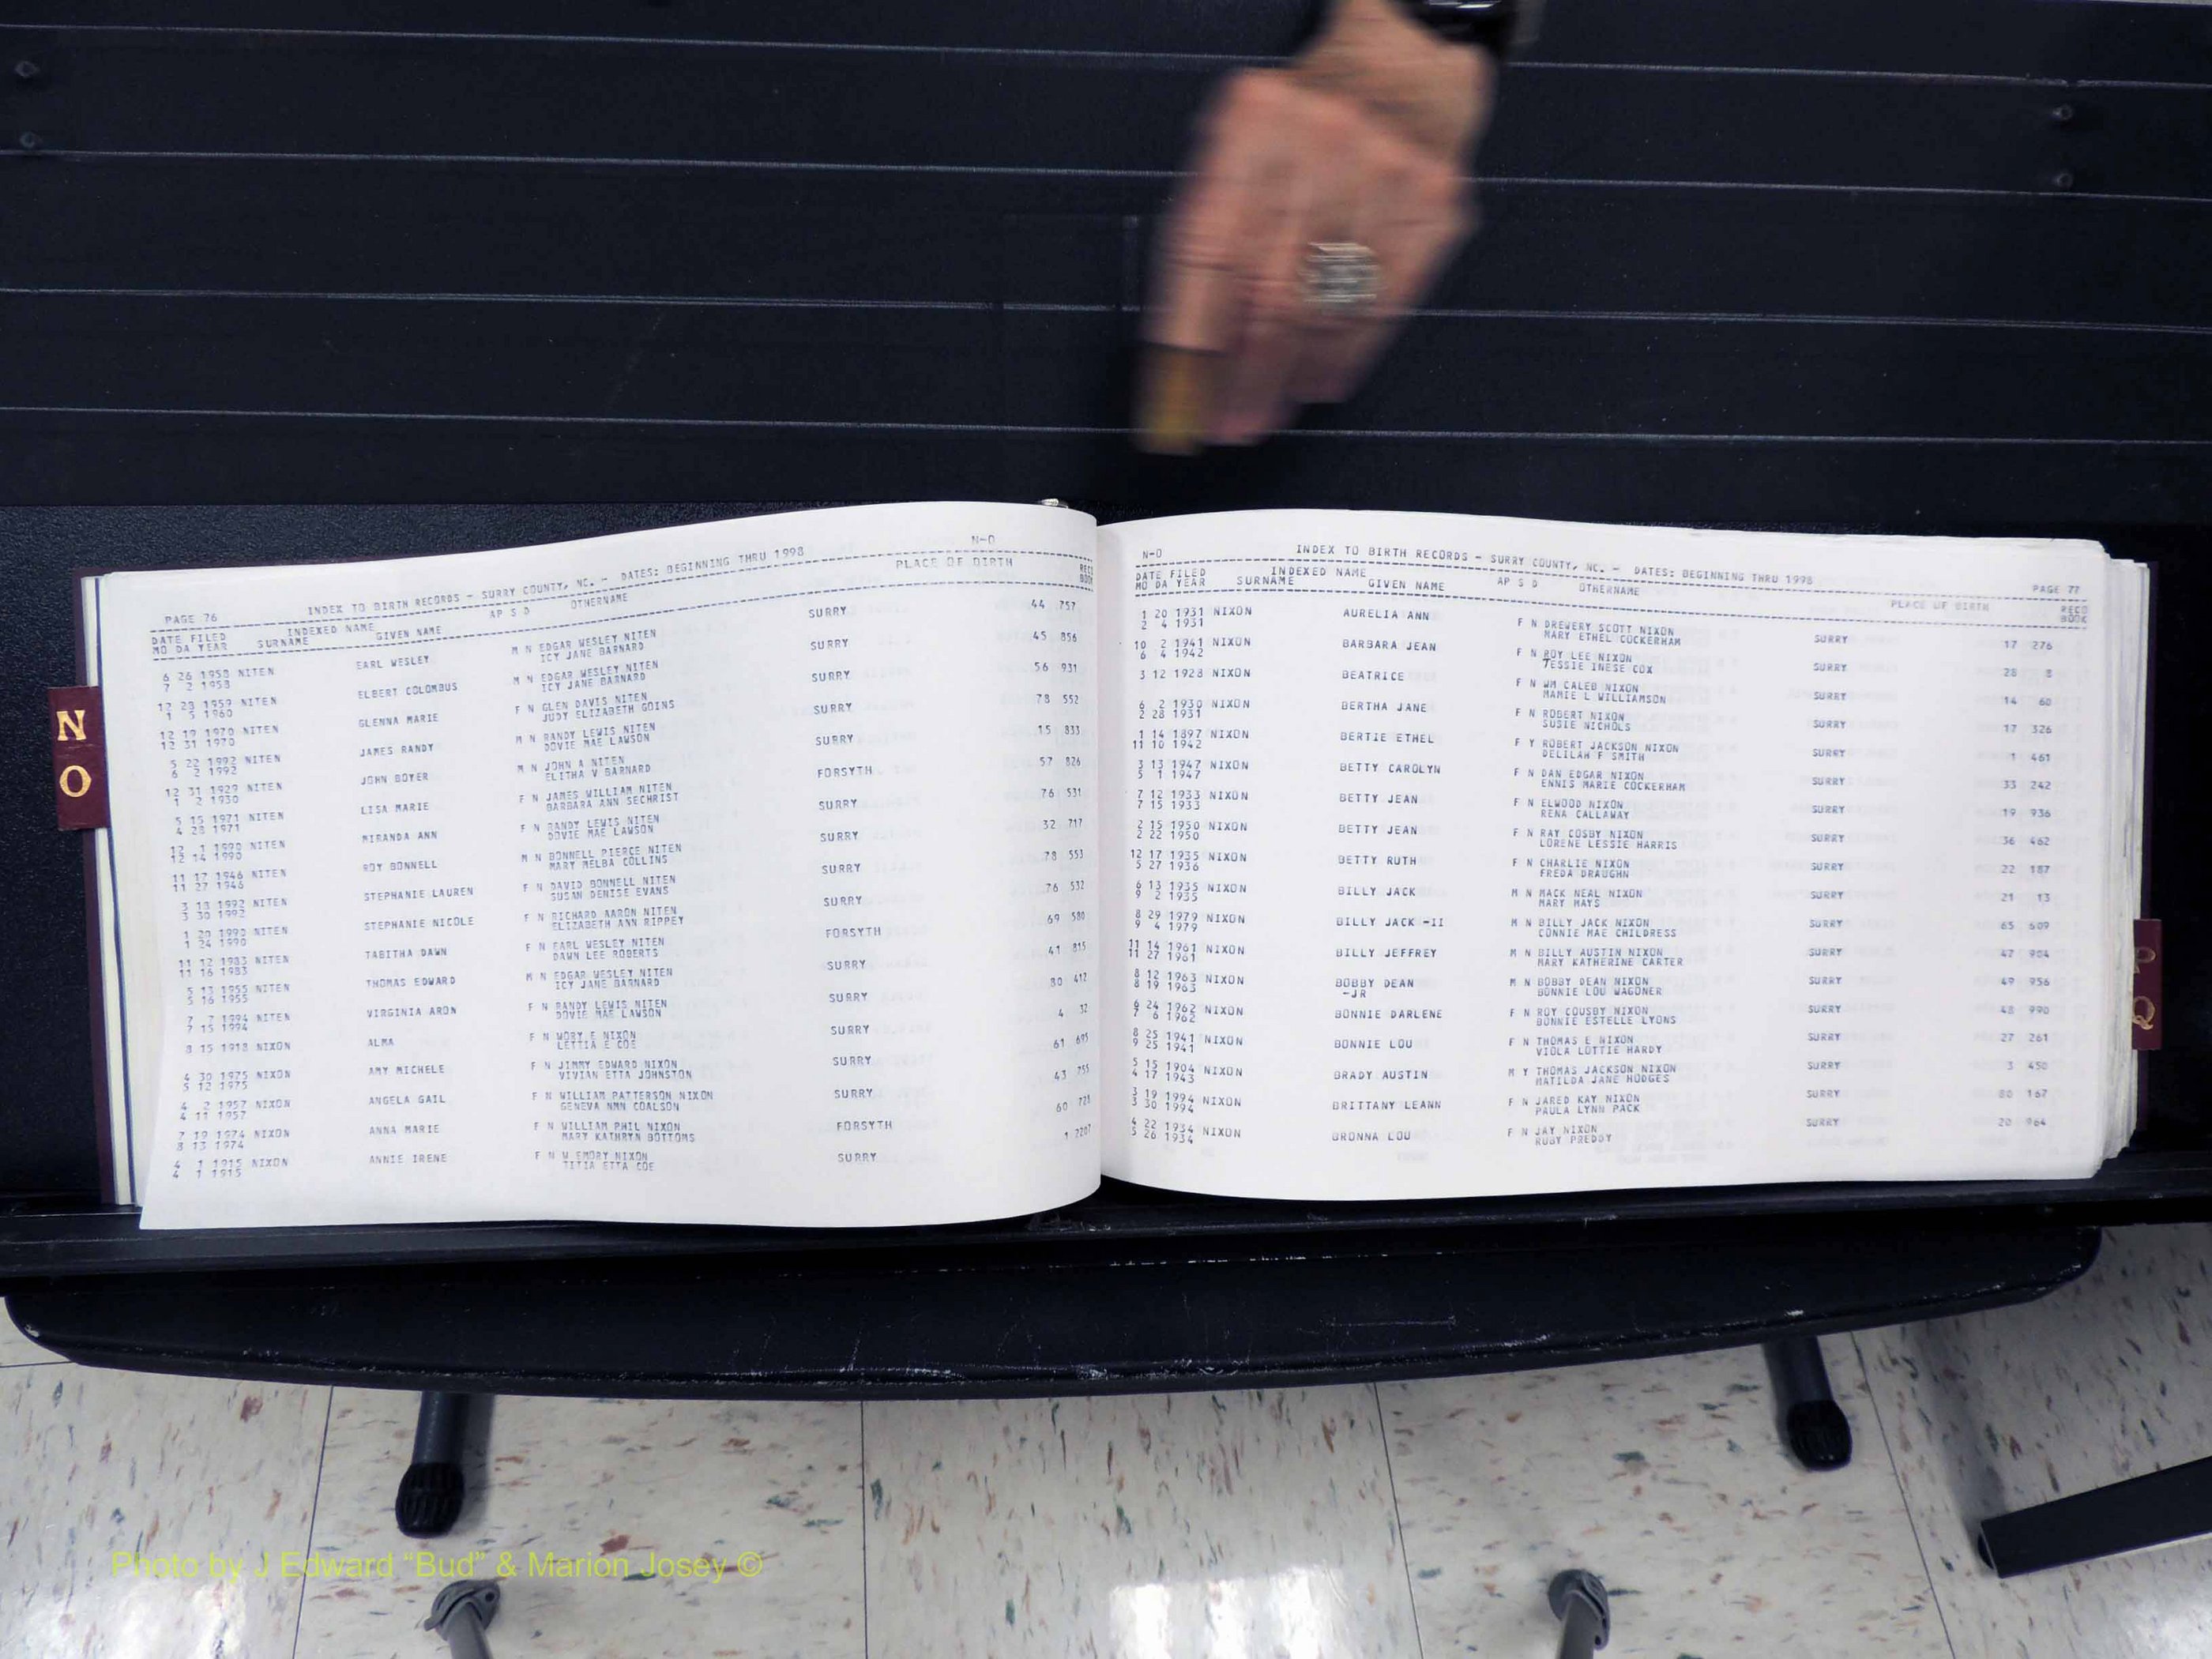 N
O
PAGE 76 INDEX TO BIRTH RECORDS - SURRY COUNTY, NC. - DATES: BEGINNING THRU 1998 N-O
DATE FILED INDEXED NAME AP S D OTHERNAME PLACE OF BIRTH RECD
MO DA YEAR SURNAME GIVEN NAME BOOK
6 26 1958 NITEN EARL WESLEY M N EDGAR WESLEY NITEN SURRY 44 757
7 2 1958 ICY JANE BARNARD
12 23 1959 NITEN ELBERT COLOMBUS M N EDGAR WESLEY NITEN SURRY 45 856
1 5 1960 ICY JANE BARNARD
12 19 1970 NITEN GLENNA MARIE F N GLEN DAVIS NITEN SURRY 56 931
12 31 1970 JUDY ELIZABETH GOINS
5 22 1992 NITEN JAMES RANDY M N RANDY LEWIS NITEN SURRY 78 552
6 2 1992 DOVIE MAE LAWSON
12 31 1929 NITEN JOHN BOYER M N JOHN A NITEN SURRY 15 833
1 2 1930 ELITHA V BARNARD
5 15 1971 NITEN LISA MARIE F N JAMES WILLIAM NITEN FORSYTH 57 826
4 28 1971 BARBARA ANN SECHRIST
12 1 1990 NITEN MIRANDA ANN F N RANDY LEWIS NITEN SURRY 76 531
12 14 1990 DOVIE MAE LAWSON
11 17 1946 NITEN ROY BONNELL M N BONNELL PIERCE NITEN SURRY 32 717
11 27 1946 MARY MELBA COLLINS
3 18 1992 NITEN STEPHANIE LAUREN F N DAVID BONNELL NITEN SURRY 78 553
3 30 1992 SUSAN DENISE EVANS
1 20 1990 NITEN STEPHANIE NICOLE F N RICHARD AARON NITEN SURRY 76 532
1 24 1990 ELIZABETH ANN RIPPEY
11 12 1983 NITEN TABITHA DAWN F N EARL WESLEY NITEN FORSYTH 69 580
11 16 1983 DAWN LEE ROBERTS
5 13 1955 NITEN THOMAS EDWARD M N EDGAR WESLEY NITEN SURRY 41 815
5 16 1955 ICY JANE BARNARD
7 7 1994 NITEN VIRGINIA ARON F N RANDY LEWIS NITEN SURRY 80 412
7 15 1994 DOVIE MAE LAWSON
8 15 1918 NIXON ALMA F N MORY E NIXON SURRY 4 32
LETTIA E COE
4 30 1975 NIXON AMY MICHELE F N JIMMY EDWARD NIXON SURRY 61 695
5 12 1975 VIVIAN ETTA JOHNSTON
4 2 1957 NIXON ANGELA GAIL F N WILLIAM PATTERSON NIXON SURRY 43 755
4 11 1957 GENEVA NMN COALSON
7 19 1974 NIXON ANNA MARIE F N WILLIAM PHIL NIXON FORSYTH 60 728
8 13 1974 MARY KATHRYN BOTTOMS
4 1 1915 NIXON ANNIE IRENE F N W EMORY NIXON SURRY 1 2207
4 1 1915 TITIA ETTA COE
N-O INDEX TO BIRTH RECORDS - SURRY COUNTY, NC. - DATES: BEGINNING THRU 1998 PAGE 77
DATE FILED INDEXED NAME AP S D OTHERNAME PLACE OF BIRTH RECD
MO DA YEAR SURNAME GIVEN NAME BOOK
1 20 1931 NIXON AURELIA ANN F N DREWERY SCOTT NIXON SURRY 17 276
2 4 1931 MARY ETHEL COCKERHAM
10 2 1941 NIXON BARBARA JEAN F N ROY LEE NIXON SURRY 28 8
6 4 1942 TESSIE INESE COX
3 12 1928 NIXON BEATRICE F N WM CALEB NIXON SURRY 14 60
MAMIE L WILLIAMSON
6 2 1930 NIXON BERTHA JANE F N ROBERT NIXON SURRY 17 326
2 28 1931 SUSIE NICHOLS
1 14 1897 NIXON BERTIE ETHEL F Y ROBERT JACKSON NIXON SURRY 1 461
11 10 1942 DELILAH F SMITH
3 13 1947 NIXON BETTY CAROLYN F N DAN EDGAR NIXON SURRY 33 242
5 1 1947 ENNIS MARIE COCKERHAM
7 12 1933 NIXON BETTY JEAN F N ELWOOD NIXON SURRY 19 936
7 15 1933 RENA CALLAWAY
2 15 1950 NIXON BETTY JEAN F N RAY COSBY NIXON SURRY 36 462
2 22 1950 LORENE LESSIE HARRIS
12 17 1935 NIXON BETTY RUTH F N CHARLIE NIXON SURRY 22 187
5 27 1936 FREDA DRAUGHN
6 13 1935 NIXON BILLY JACK M N MACK NEAL NIXON SURRY 21 13
9 2 1935 MARY MAYS
8 29 1979 NIXON BILLY JACK -II M N BILLY JACK NIXON SURRY 65 609
9 4 1979 CONNIE MAE CHILDRESS
11 14 1961 NIXON BILLY JEFFREY M N BILLY AUSTIN NIXON SURRY 47 904
11 27 1961 MARY KATHERINE CARTER
8 12 1963 NIXON BOBBY DEAN M N BOBBY DEAN NIXON SURRY 49 956
8 19 1963 -JR BONNIE LOU WAGONER
6 24 1962 NIXON BONNIE DARLENE F N ROY COUSBY NIXON SURRY 48 990
7 6 1962 BONNIE ESTELLE LYONS
8 25 1941 NIXON BONNIE LOU F N THOMAS E NIXON SURRY 27 261
9 25 1941 VIOLA LOTTIE HARDY
5 15 1904 NIXON BRADY AUSTIN M Y THOMAS JACKSON NIXON SURRY 3 450
4 17 1943 MATILDA JANE HODGES
3 19 1994 NIXON BRITTANY LEANN F N JARED KAY NIXON SURRY 80 167
3 30 1994 PAULA LYNN PACK
4 22 1934 NIXON BRONNA LOU F N JAY NIXON SURRY 20 964
5 26 1934 RUBY PREDDY
Q
Photo by J Edward “Bud” & Marion Josey ©